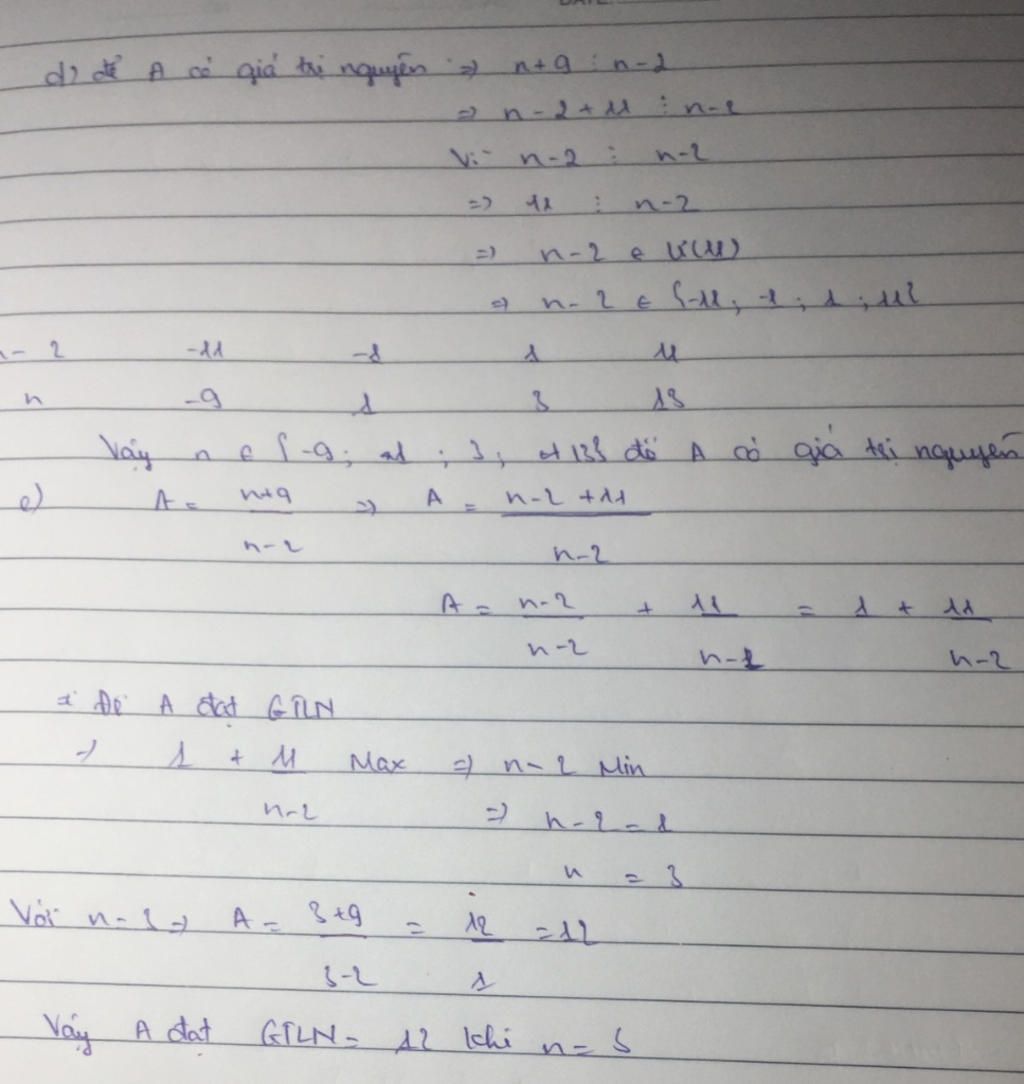 d) để A có giá trị nguyên => n+9 ⋮ n-2
=> n-2+11 ⋮ n-2
Vì n-2 ⋮ n-2
=> 11 ⋮ n-2
=> n-2 ∈ Ư(11)
=> n-2 ∈ {-11; -1; 1; 11}
n-2 -11 -1 1 11
n -9 1 3 13
Vậy n ∈ {-9; 1; 3; 13} để A có giá trị nguyên
e) A = n+9 / n-2 => A = n-2+11 / n-2
A = n-2 / n-2 + 11 / n-2 = 1 + 11 / n-2
Để A đạt GTLN
=> 1 + 11 / n-2 Max => n-2 Min
=> n-2 = 1
n = 3
Với n=3 => A = 3+9 / 3-2 = 12 / 1 = 12
Vậy A đạt GTLN = 12 khi n = 3